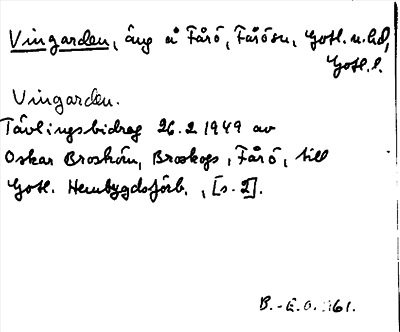 Vingarden, äng å Fårö, Fårösn, Gotl. n. hd,
Gotl. l.
Vingarden.
Tävlingsbidrag 26.2.1949 av
Oskar Broström, Broskogs, Fårö, till
Gotl. Hembygdsförb., [s. 2].
B.-E.O. 1961.